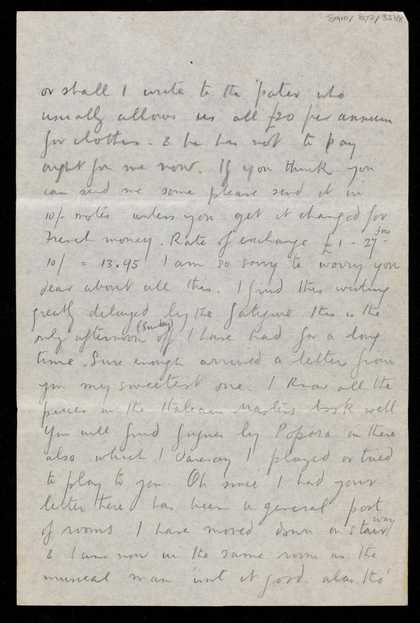 or shall I write to the pater who
usually allows us all £20 per annum
for clothes. & he has not to pay
ought for me now. If you think you
can send me some please send it in
10/- notes unless you get it changed for
French money. Rate of exchange £1 - 27
10/ = 13.95 I am so sorry to worry you
dear about all this. I find this writing
greatly delayed by the fatigue this is the
only afternoon (Sunday) off I have had for a long
time. Sure enough arrived a letter from
you my sweetest one. I know all the
pieces in the Italian Masters book well
You will find fugues by Popora in there
also which I daresay I played or tried
to play to you. Oh since I had your
letter there has been a general post
of rooms I have moved down on stair way
& I am now in the same room as the
musical man isn't it good. alas tho'